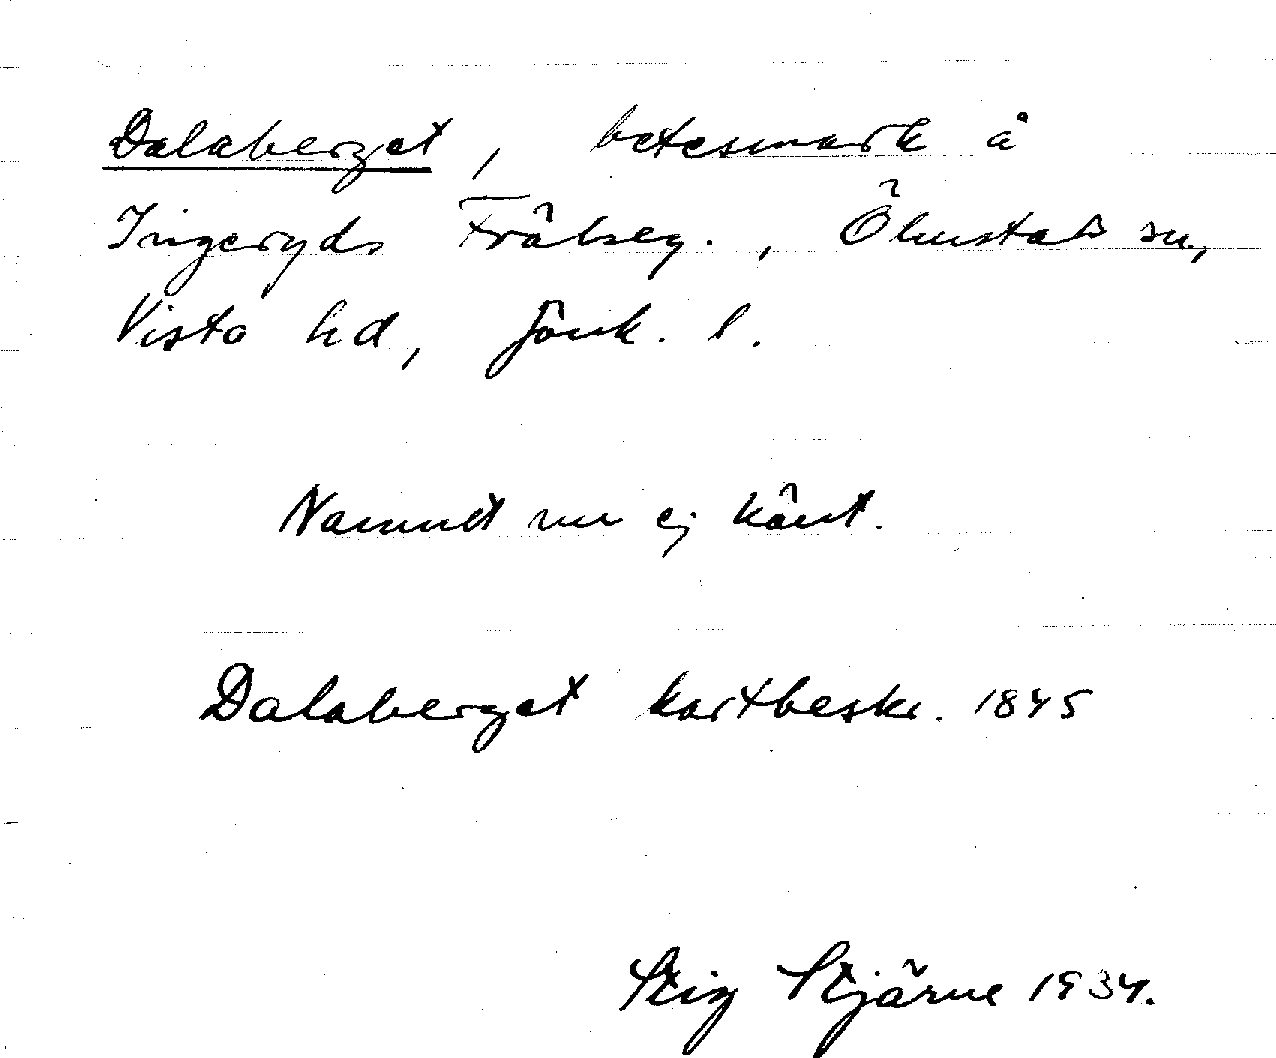 Dalaberget, betesmark å
Ingeryds Frälseg., Ölmstads sn,
Vista hd, Jönk. l.
Namnet nu ej känt.
Dalaberget kartbeskr. 1845
Stig Stjärne 1934.